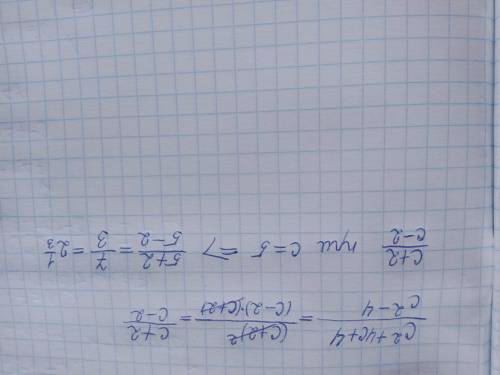 (c² + 4c + 4)/(c² - 4) = (c+2)²/((c-2)·(c+2)) = (c+2)/(c-2)
(c+2)/(c-2) при c = 5 => (5+2)/(5-2) = 7/3 = 2 1/3